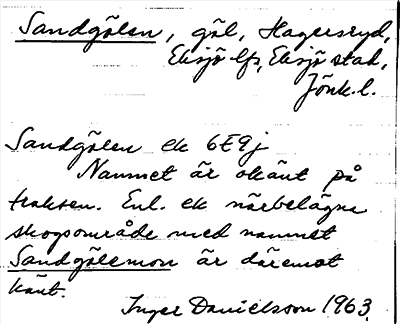 Sandgölen, göl, Hagersryd,
Eksjö lfs, Eksjö stad,
Jönk. l.
Sandgölen ek 6E9j
Namnet är okänt på
trakten. Enl. ek närbelägna
skogsområde med namnet
Sandgölemon är däremot
känt.
Inger Danielsson 1963.